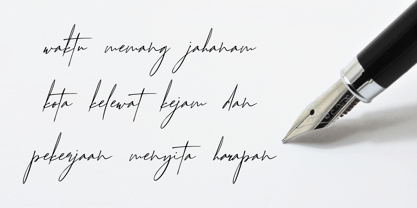 waktu memang jahanam
kota kelewat kejam dan
pekerjaan menyita harapan